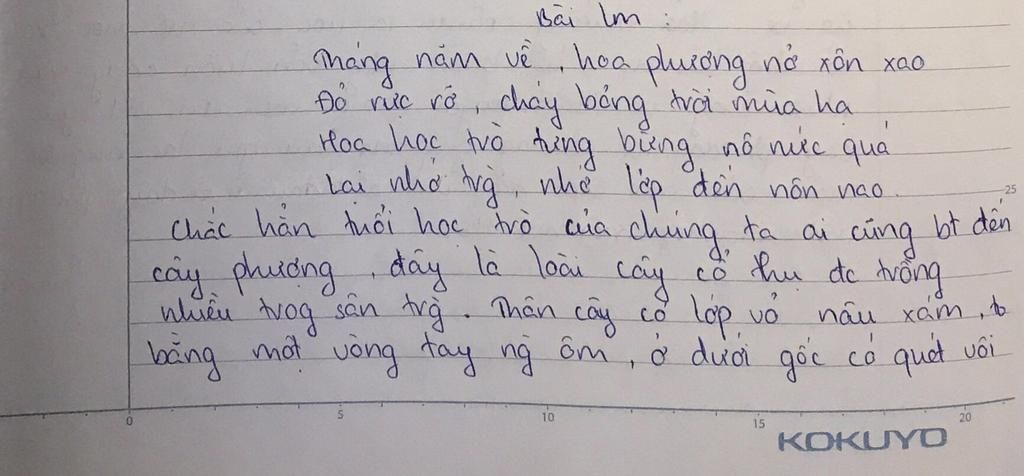 Bài lm :
Tháng năm về, hoa phượng nở xôn xao
Đỏ rực rỡ, cháy bỏng trời mùa hạ
Hoa học trò tưng bừng nô nức quá
Lại nhớ trg, nhớ lớp đến nôn nao.
Chắc hẳn tuổi học trò của chúng ta ai cũng bt đến
cây phượng, đây là loài cây cổ thụ đc trồng
nhiều trog sân trg. Thân cây có lớp vỏ nâu xám, to
bằng một vòng tay ng ôm, ở dưới gốc có quét vôi
0 5 10 15 20
25
KOKUYO